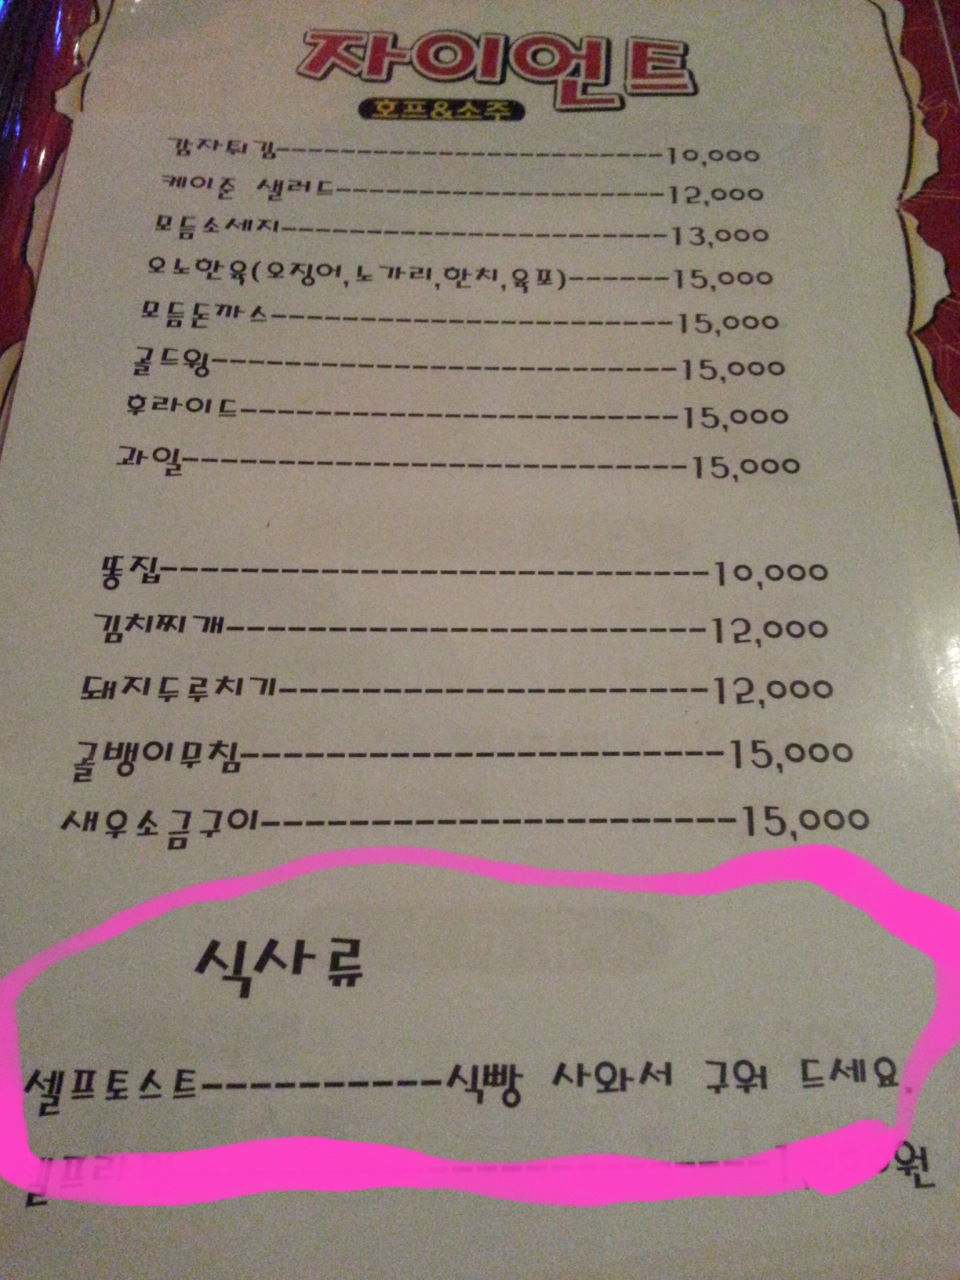 자이언트
호프&소주
감자튀김---------------------------10,000
케이준 샐러드-----------------------12,000
모듬소세지--------------------------13,000
오노한육(오징어,노가리,한치,육포)------15,000
모듬돈까스--------------------------15,000
골드윙------------------------------15,000
후라이드----------------------------15,000
과일--------------------------------15,000
똥집--------------------------------10,000
김치찌개----------------------------12,000
돼지두루치기-------------------------12,000
골뱅이무침--------------------------15,000
새우소금구이-------------------------15,000
식사류
셀프토스트----------식빵 사와서 구워 드세요.